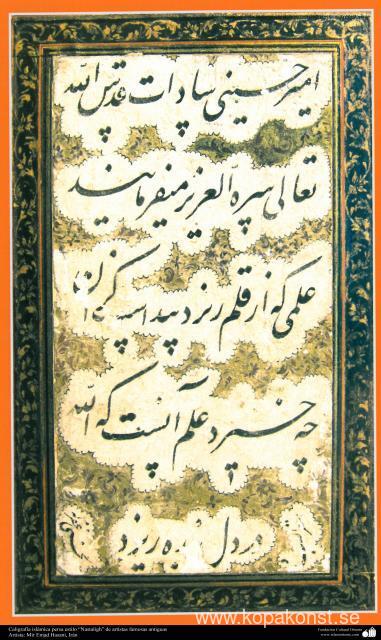 امیر حسینی سادات قدس الله
تعالی سره العزیز میفرمایند
علمی که از قلم ریزد پیداست کزان
چه خیزد علم آنست که الله
در دل ریزد
www.kopakonst.se
Caligrafía islámica persa estilo “Nastaligh” de artistas famosas antiguas
Artista: Mir Emad Hasani, Irán
Fundación Cultural Oriente
www.islamoriente.com